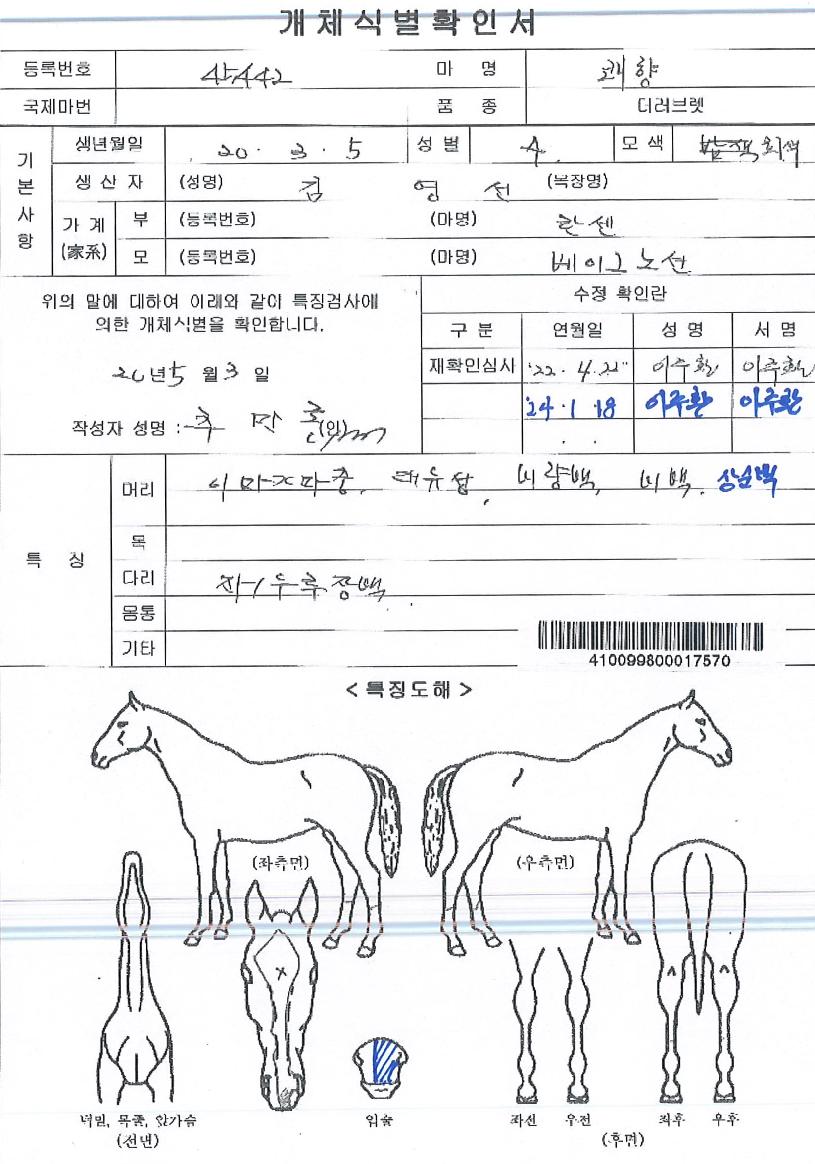 개체식별확인서
등록번호 45442 마 명 쾌향
국제마번 품 종 더러브렛
기본사항
생년월일 20 . 3 . 5 성별 수 모색
생산자 (성명) 김 영 선 (목장명)
가계 (家系) 부 (등록번호) (마명) 란센
모 (등록번호) (마명) 베이그노선
위의 말에 대하여 이래와 같이 특징검사에
의한 개체식별을 확인합니다.
20년 5 월 3 일
작성자 성명 : 추 만 (인)
수정 확인란
구 분 연월일 성 명 서 명
재확인심사 '22. 4. 이주환 이주환
'24. 1 18 이주환 이주환
. .
특 징
머리 대유상, 비량백, 비백. 상순백
목
다리 장백
몸통
기타
410099800017570
< 특징도해 >
(좌측면) (우측면)
턱밑, 목줄, 앞가슴
(전낸)
입술
좌전 우전 좌후 우후
(후면)